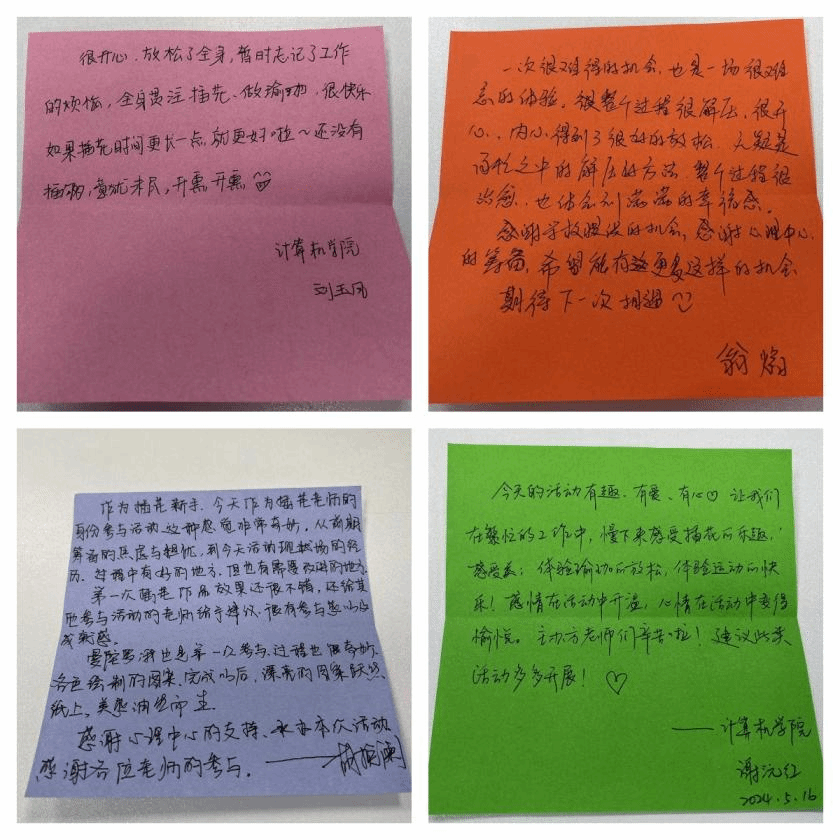 很开心,放松了全身,暂时忘记了工作
的烦恼,全身贯注插花、做瑜伽,很快乐
如果插花时间更长一点,就更好啦~还没有
插够,意犹未尽,开熏,开熏
计算机学院
刘玉凤
一次很难得的机会,也是一场很难
忘的体验。很整个过程很解压,很开
心、内心得到了很好的放松,无疑是
百忙之中的解压的方法,整个过程很
治愈,也体会到满满的幸福感。
感谢学校提供的机会,感谢心理中心
的筹备,希望能有更多这样的机会
期待下一次相遇
翁
作为插花新手,今天作为插花老师的
身份参与活动,这种感觉非常奇妙,从前期
筹备的焦虑与担忧,到今天活动现场的经
历,过程中有好的地方,但也有需要改进的地方。
第一次插花作品效果还很不错,还给其
他参与活动的老师给予建议,很有参与感以及
成就感。
曼陀罗我也是第一次参与,过程也很奇妙
各色绘制的图案,完成以后,漂亮的图案跃然
纸上,美感油然而生。
感谢心理中心的支持、承办本次活动
感谢各位老师的参与。——胡
今天的活动有趣、有爱、有心♡ 让我们
在繁忙的工作中,慢下来感受插花的乐趣,
感受美;体验瑜伽的放松,体验运动的快
乐!感情在活动中升温,心情在活动中变得
愉悦。主办方老师们辛苦啦!建议此类
活动多多开展!♡
——计算机学院
谢沅红
2024.5.16